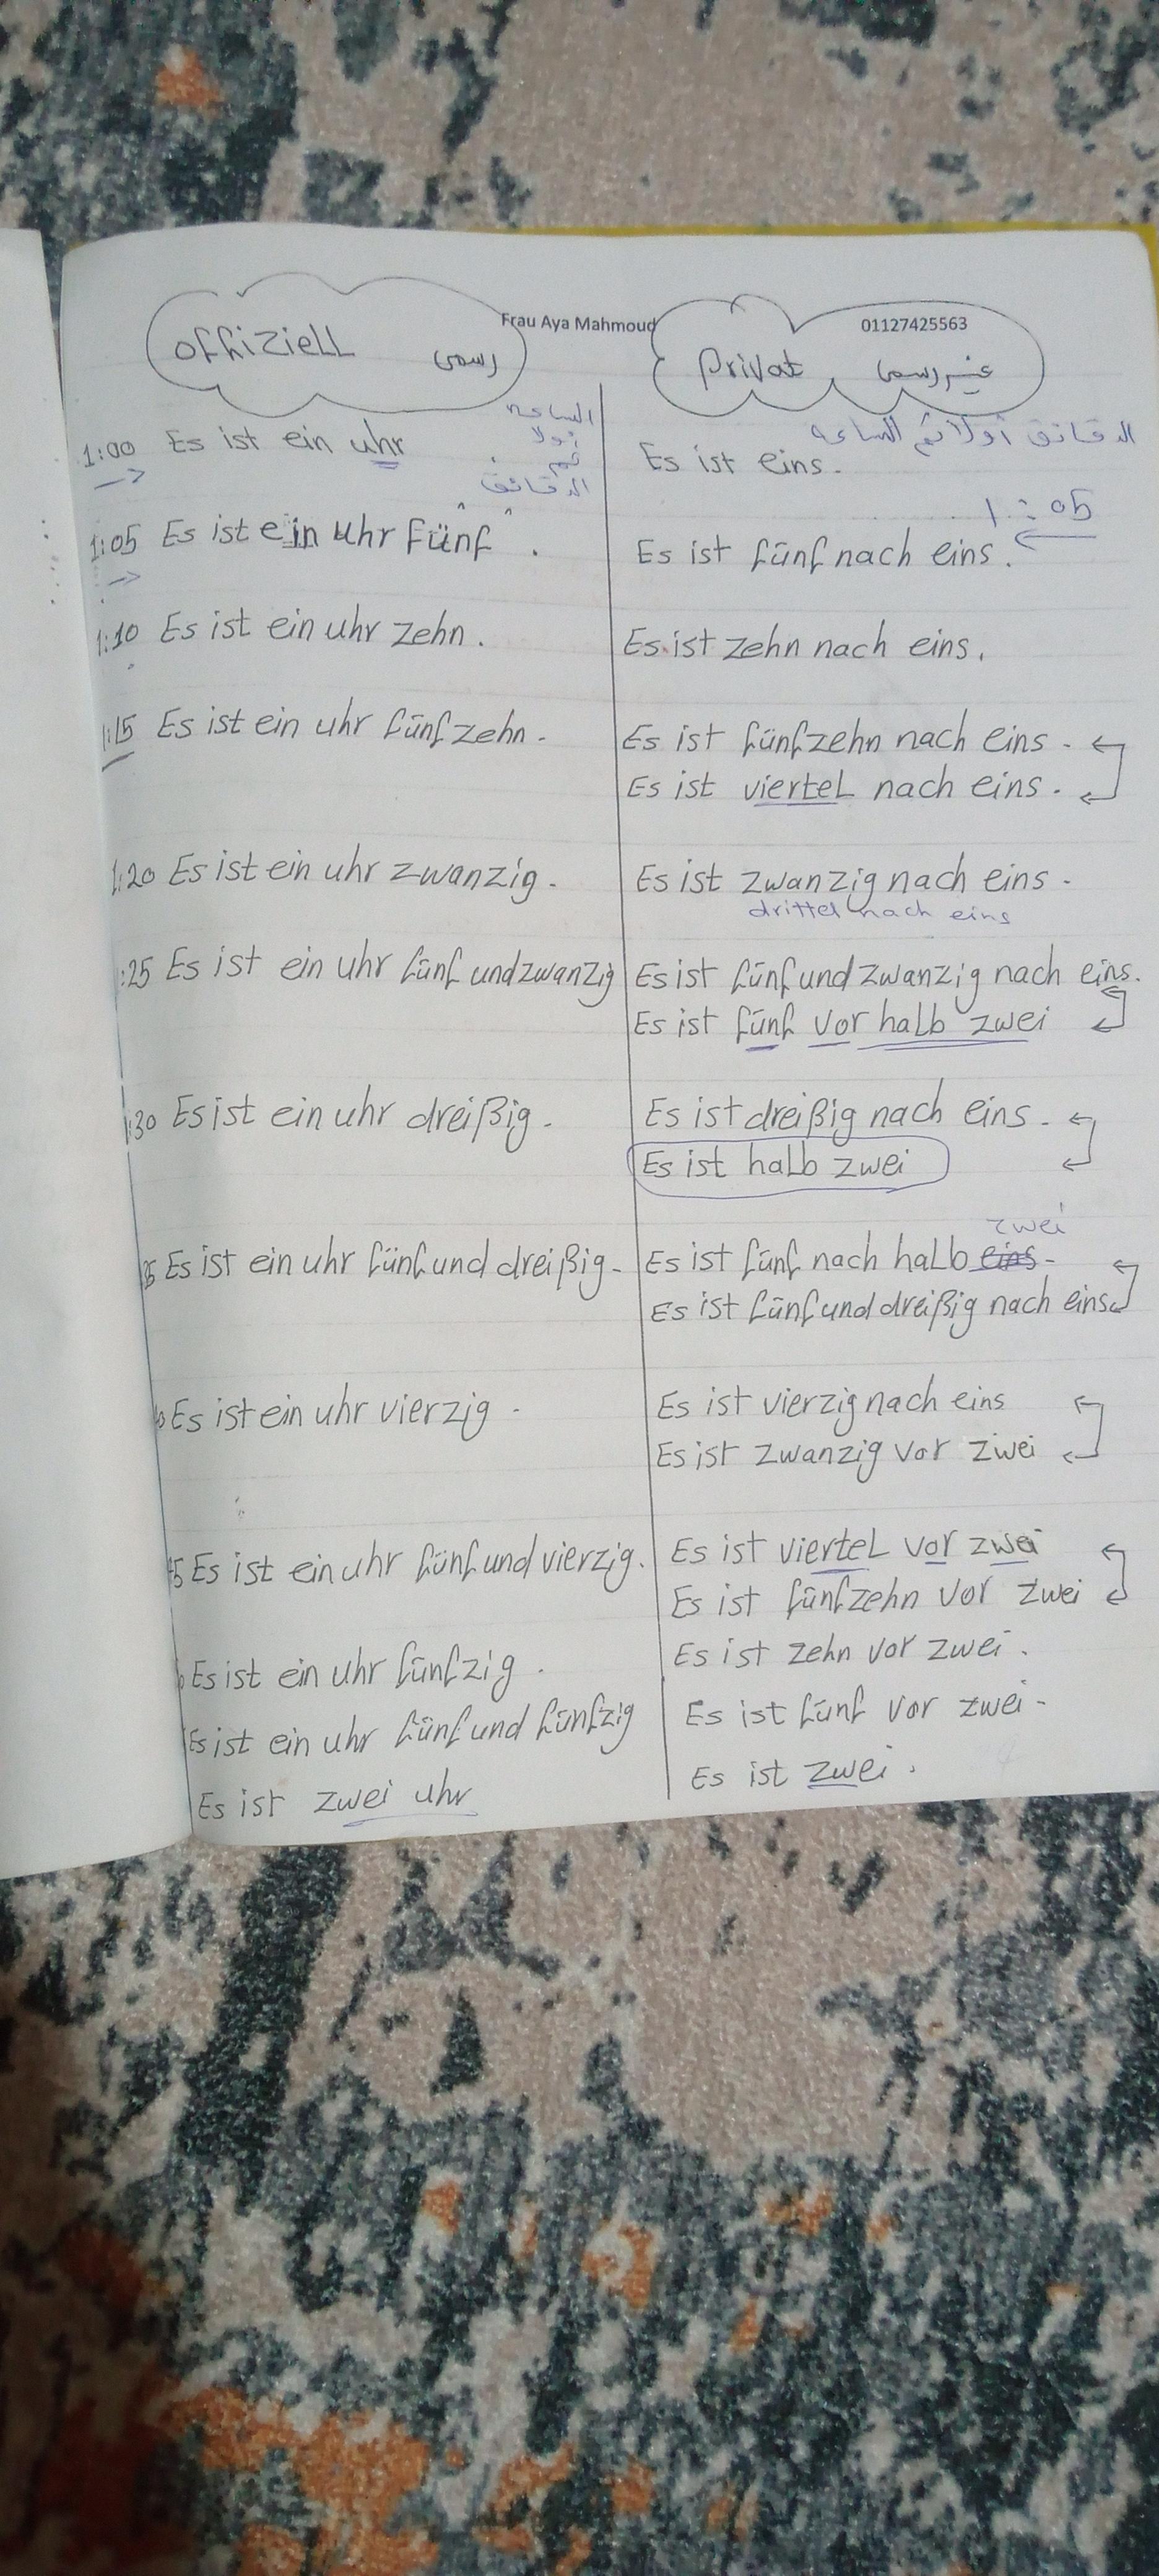 Frau Aya Mahmoud 01127425563
offiziell رسمى
Privat غير رسمى
الساعه
أولا
ثم
الدقائق
الدقائق أولا ثم الساعه
1:00 Es ist ein uhr
Es ist eins.
1:05
1:05 Es ist ein uhr fünf.
Es ist fünf nach eins.
1:10 Es ist ein uhr zehn.
Es ist zehn nach eins.
1:15 Es ist ein uhr fünfzehn.
Es ist fünfzehn nach eins.
Es ist viertel nach eins.
1:20 Es ist ein uhr zwanzig.
Es ist zwanzig nach eins.
drittel nach eins
:25 Es ist ein uhr fünf undzwanzig
Es ist fünfundzwanzig nach eins.
Es ist fünf vor halb zwei
1:30 Es ist ein uhr dreißig.
Es ist dreißig nach eins.
Es ist halb zwei
zwei
5 Es ist ein uhr fünfund dreißig.
Es ist fünf nach halb eins.
Es ist fünfund dreißig nach eins
0 Es ist ein uhr vierzig.
Es ist vierzig nach eins
Es ist zwanzig vor zwei
45 Es ist ein uhr fünfund vierzig.
Es ist viertel vor zwei
Es ist fünfzehn vor zwei
Es ist ein uhr fünfzig.
Es ist zehn vor zwei.
Es ist ein uhr fünf und fünfzig
Es ist fünf vor zwei.
Es ist zwei uhr
Es ist zwei.